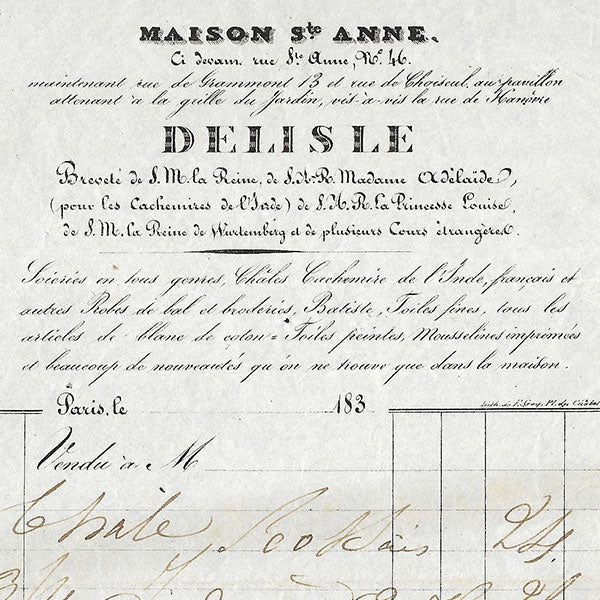 MAISON Ste ANNE.
Ci devant rue Ste Anne, No. 46.
maintenant rue de Grammont 13 et rue de Choiseul, au pavillon
attenant à la grille du Jardin, vis-à-vis la rue de Hanôvre
DELISLE
Breveté de S.M. la Reine, de S.A.R. Madame Adélaïde,
(pour les Cachemires de l'Inde) de S.A.R. la Princesse Louise,
de S.M. la Reine de Wurtemberg et de plusieurs Cours étrangères.
Soieries en tous genres, Châles Cachemire de l'Inde, français et
autres Robes de bal et broderies, Batiste, Toiles fines, tous les
articles de blanc de coton = Toiles peintes, Mousselines imprimées
et beaucoup de nouveautés qu'on ne trouve que dans la maison.
Paris, le 183
Lith. de
Vendu à M
Chale 24